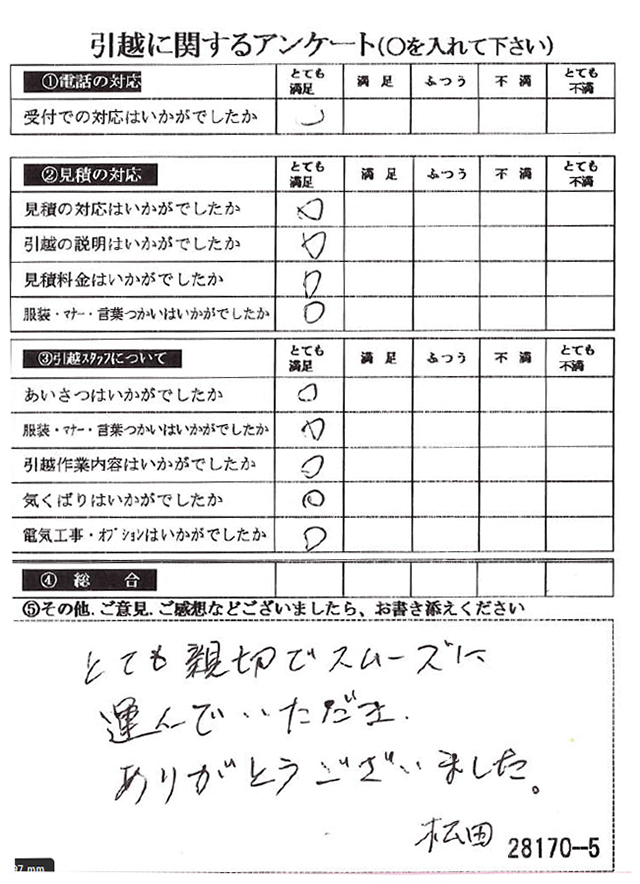 引越に関するアンケート(〇を入れて下さい)
①電話の対応 とても満足 満足 ふつう 不満 とても不満
受付での対応はいかがでしたか
②見積の対応 とても満足 満足 ふつう 不満 とても不満
見積の対応はいかがでしたか
引越の説明はいかがでしたか
見積料金はいかがでしたか
服装・マナー・言葉つかいはいかがでしたか
③引越スタッフについて とても満足 満足 ふつう 不満 とても不満
あいさつはいかがでしたか
服装・マナー・言葉つかいはいかがでしたか
引越作業内容はいかがでしたか
気くばりはいかがでしたか
電気工事・オプションはいかがでしたか
④総合
⑤その他.ご意見.ご感想などございましたら、お書き添えください
とても親切でスムーズに
運んでいただき.
ありがとうございました。
松田 28170--5
97 mm